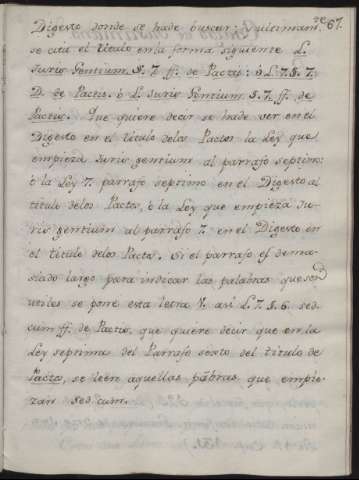 67.
Digesto donde se hade buscar: y ultimam.te
se cita el titulo en la forma siguiente L.
Juris Gentium. §. 7. ff. de Pactis: ò L. 7. §. 7.
D. de Pactis. ò L. Juris Gentium. §. 7. ff. de
Pactis. Que quiere decir se hade ver en el
Digesto en el titulo delos Pactos la Ley que
empieza Juris gentium al parrafo septimo:
ò la Ley 7. parrafo septimo en el Digesto al
titulo delos Pactos, ò la Ley que empieza Ju-
ris gentium al parrafo 7. en el Digesto en
el titulo delos Pactos. Si el parrafo es dema-
siado largo para indicar las palabras que son
utiles se pone esta letra V. asi L. 7. §. 6. sed.
cum ff. de Pactis, que quiere decir que en la
Ley septima del Parrafo sexto del titulo de
Pactos, se leen aquellas pãbras, que empie-
zan sed cum.